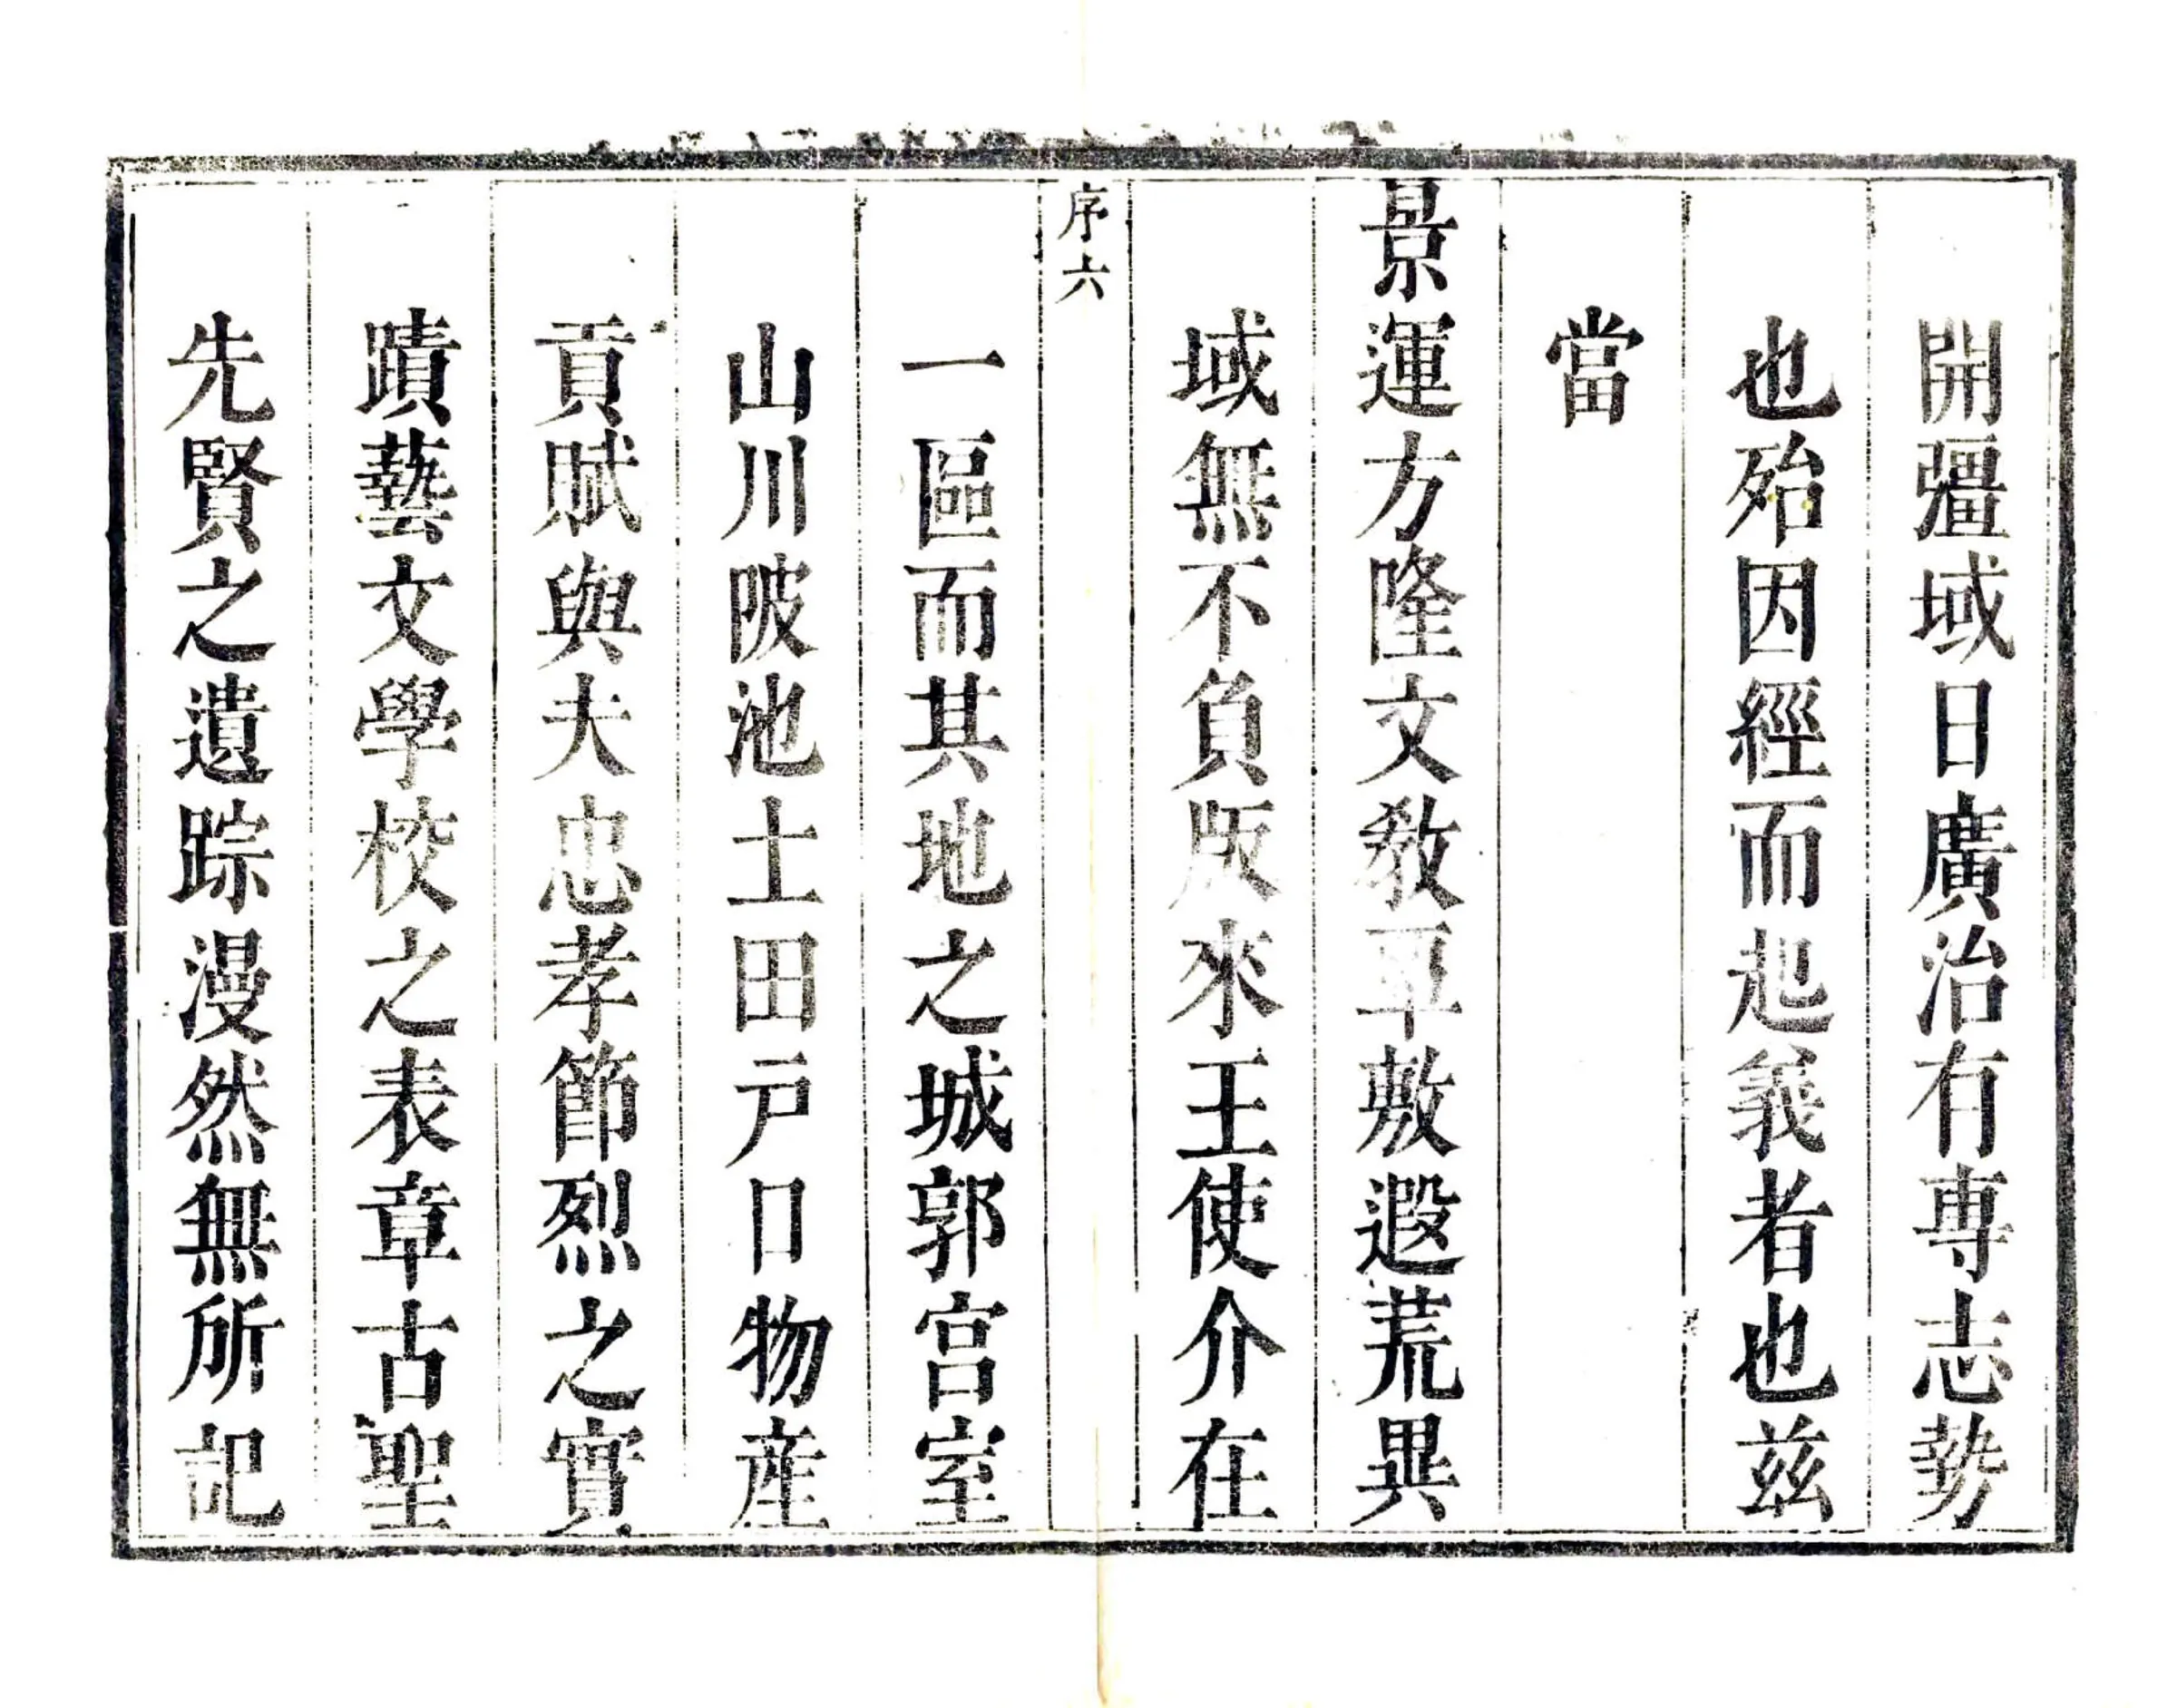 開疆域日廣治有專志勢
也殆因經而起義者也兹
當
景運方隆文敎覃敷遐荒異
域無不負版來王使介在
序六
一區而其地之城郭宫室
山川陂池土田戸口物産
貢賦與夫忠孝節烈之實
蹟藝文學校之表章古聖
先賢之遺踪漫然無所記